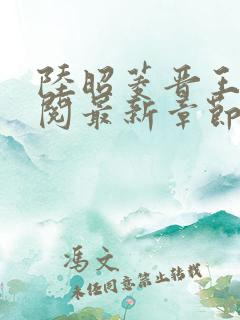 陸昭菱晋王
閱最新章節
馮文
未经同意禁止转载